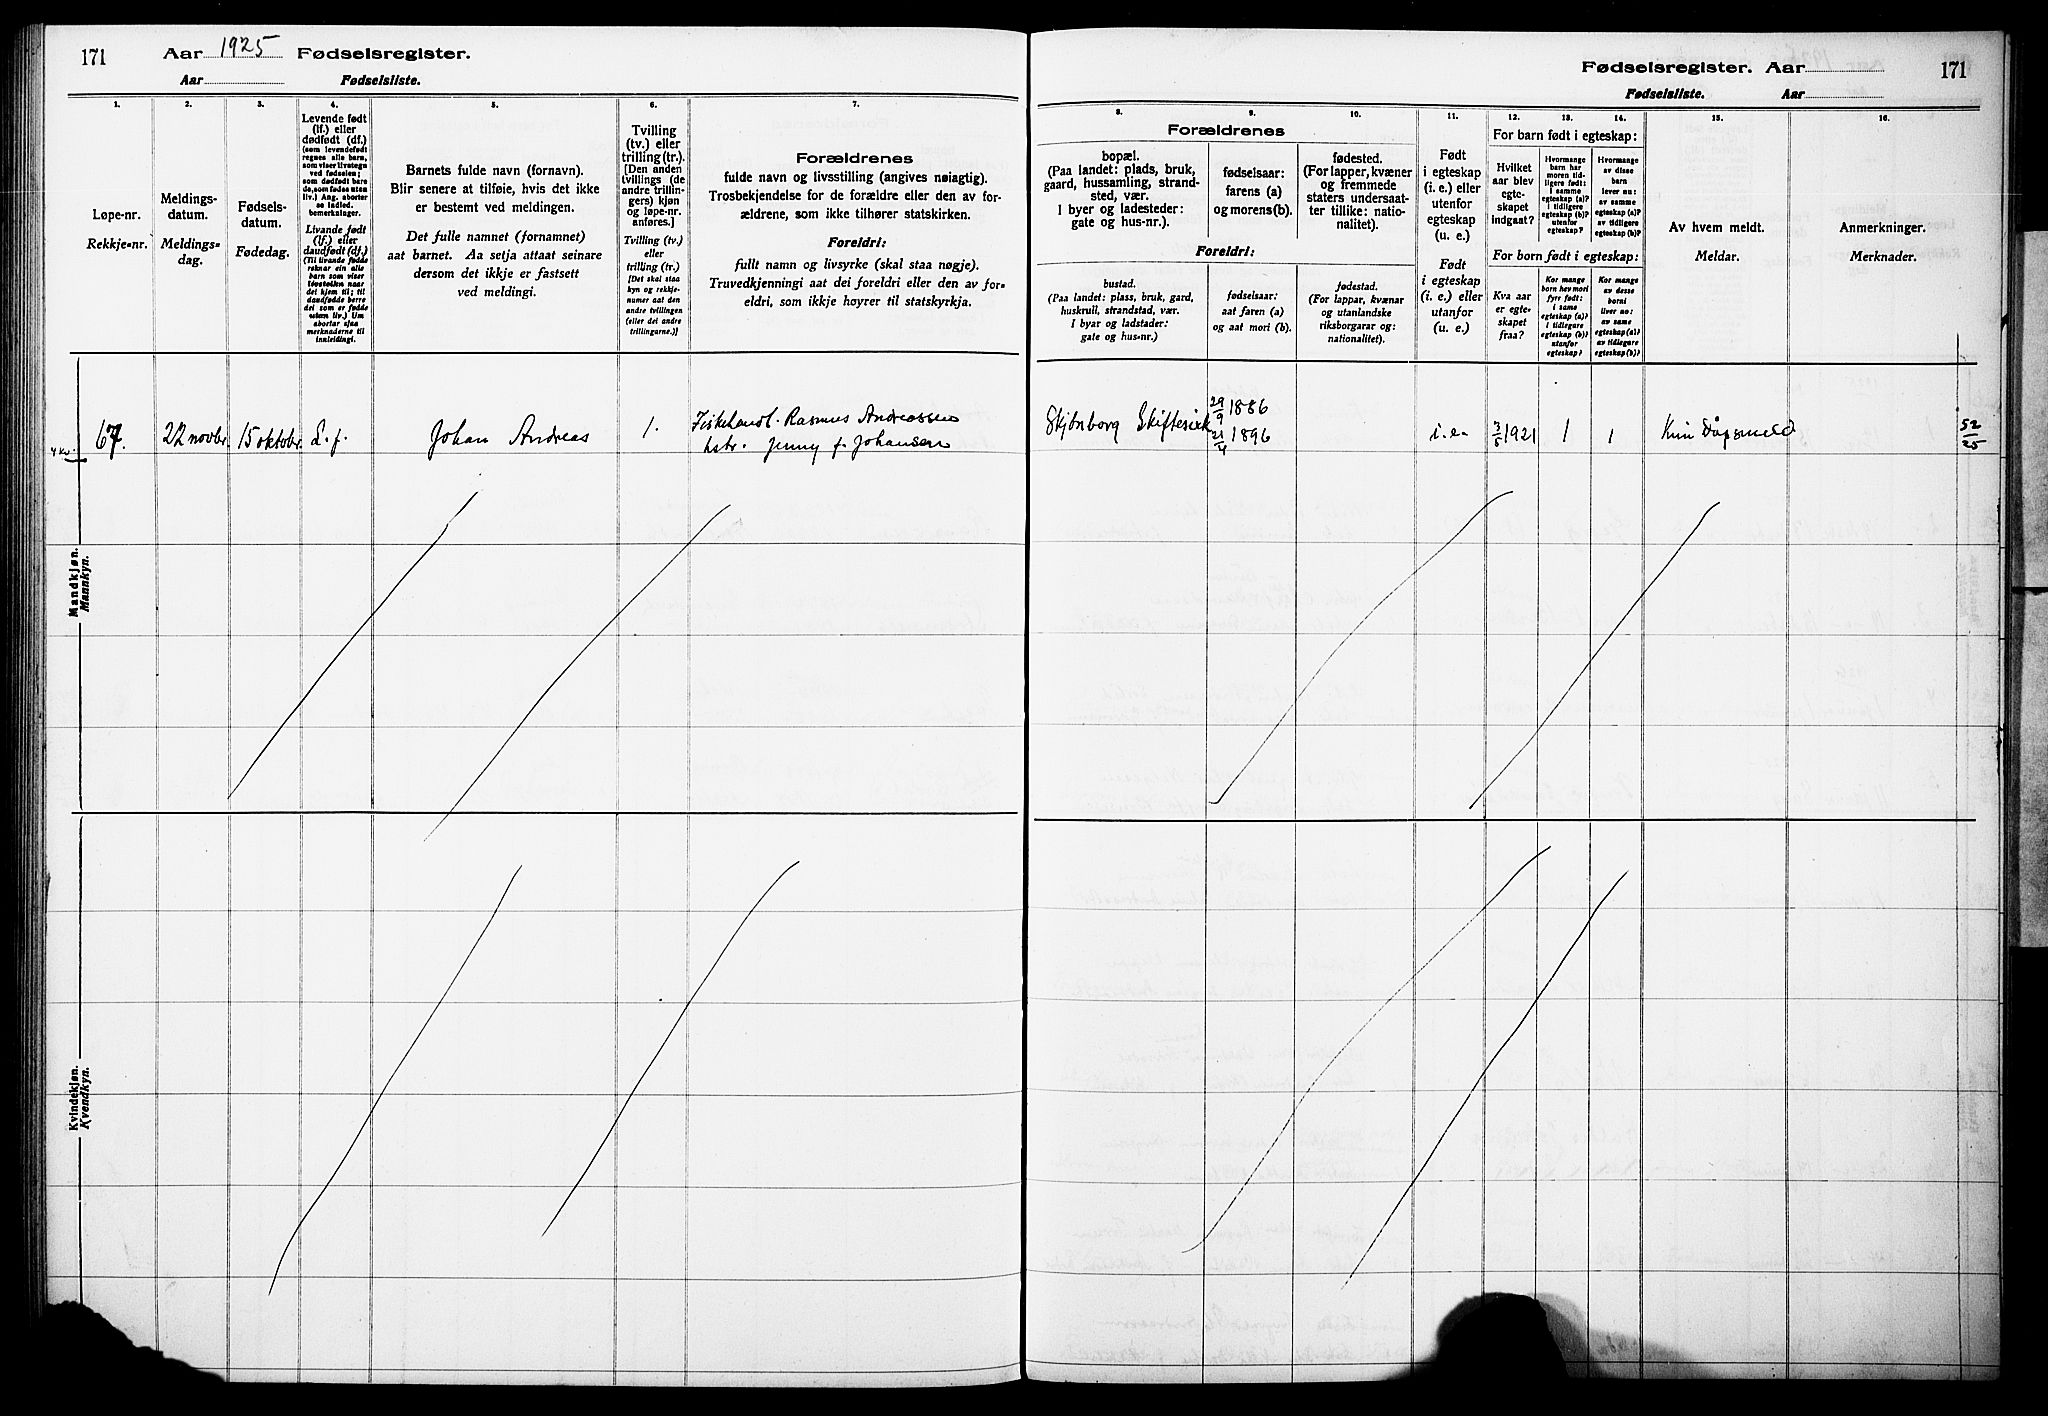 171
Aar 1925 Fødselsregister.
Aar Fødselsliste.
1.
2.
3.
4.
5.
6.
7.
Løpe-nr.
Rekkje-nr.
Meldings-
datum.
Meldings-
dag.
Fødsels-
datum.
Fødedag.
Levende født
(lf.) eller
dødfødt (df.)
(som levendefødt
regnes alle barn,
som viser livstegn
ved fødselen;
som dødfødt bare
de, som fødes uten
liv.) Ang. aborter
se ladled.
bemerkninger.
Livande født
(lf.) eller
daudfødt (df.)
(Til livande fødde
reknar ein alle
barn som viser
livsteikn naar
dei kjem til; til
daudfødde berre
dei som er fødde
utan liv.) Um
abortar sjaa
merknaderne til
innleidingi.
Barnets fulde navn (fornavn).
Blir senere at tilføie, hvis det ikke
er bestemt ved meldingen.
Det fulle namnet (fornamnet)
aat barnet. Aa setja attaat seinare
dersom det ikkje er fastsett
ved meldingi.
Tvilling
(tv.) eller
trilling (tr.).
[Den anden
tvillings (de
andre trillin-
gers) kjøn
og løpe-nr.
anføres.]
Tvilling (tv.)
eller
trilling (tr.)
[Det skal staa
kyn og rekkje-
numer aat den
andre tvillingen
(eller dei andre
trillingarne.)]
Forældrenes
fulde navn og livsstilling (angives nøiagtig).
Trosbekjendelse for de forældre eller den av for-
ældrene, som ikke tilhører statskirken.
Foreldri:
fullt namn og livsyrke (skal staa nøgje).
Truvedkjenningi aat dei foreldri eller den av for-
eldri, som ikkje høyrer til statskyrkja.
67.
22 novbr.
15 oktobr.
L. f.
Johan Andreas
1.
Fiskehandl. Rasmus Andreassen
hstr. Jenny f. Johansen
Mandkjøn.
Mannkyn.
Kvindekjøn.
Kvendkyn.
Fødselsregister. Aar
171
Fødselsliste. Aar
8.
9.
10.
11.
12.
13.
14.
15.
16.
Forældrenes
bopæl.
(Paa landet: plads, bruk,
gaard, hussamling, strand-
sted, vær.
I byer og ladesteder:
gate og hus-nr.).
fødselsaar:
farens (a)
og morens (b).
fødested.
(For lapper, kvæner
og fremmede
staters undersaat-
ter tillike: natio-
nalitet).
Foreldri:
bustad.
(Paa landet: plass, bruk, gard,
huskrull, strandstad, vær.
I byar og ladstader:
gate og hus-nr.)
fødselsaar:
aat faren (a)
og aat mori (b).
fødestad.
(For lappar, kvænar
og utanlandske
riksborgarar og:
nationalitet).
Født
i egteskap
(i. e.) eller
utenfor
egteskap
(u. e.)
Født
i egteskap
(i. e.) eller
utanfor
(u. e.)
For barn født i egteskap:
Hvilket
aar blev
egte-
skapet
indgaat?
Hvormange
barn har
moren tid-
ligere født:
i samme
egteskap (a)?
i tidligere
egteskap (b)?
utenfor
egteskap?
Hvormange
av disse
barn
lever nu:
av samme
egteskap (a)?
av tidligere
egteskap (b)?
For born født i egteskap:
Kva aar
er egte-
skapet
fraa?
Kor mange
born hev mori
fyrr født:
i same
egteskap (a)?
i tidlegare
egteskap (b)?
utanfor
egteskap?
Kor mange
av desse
borni
liver nu:
av same
egteskap (a)?
av tidlegare
egteskap (b)?
Av hvem meldt.
Meldar.
Anmerkninger.
Merknader.
29/9 1886
21/4 1896
i. e.
3/5 1921
1
1
52/25